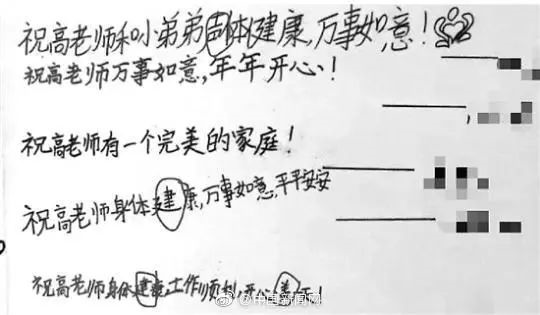 祝高老师和小弟弟身体健康,万事如意!
祝高老师万事如意,年年开心!
祝高老师有一个完美的家庭!
祝高老师身体建康,万事如意,平平安安
祝高老师身体建康,工作顺利,开心美天!
@中国新闻网